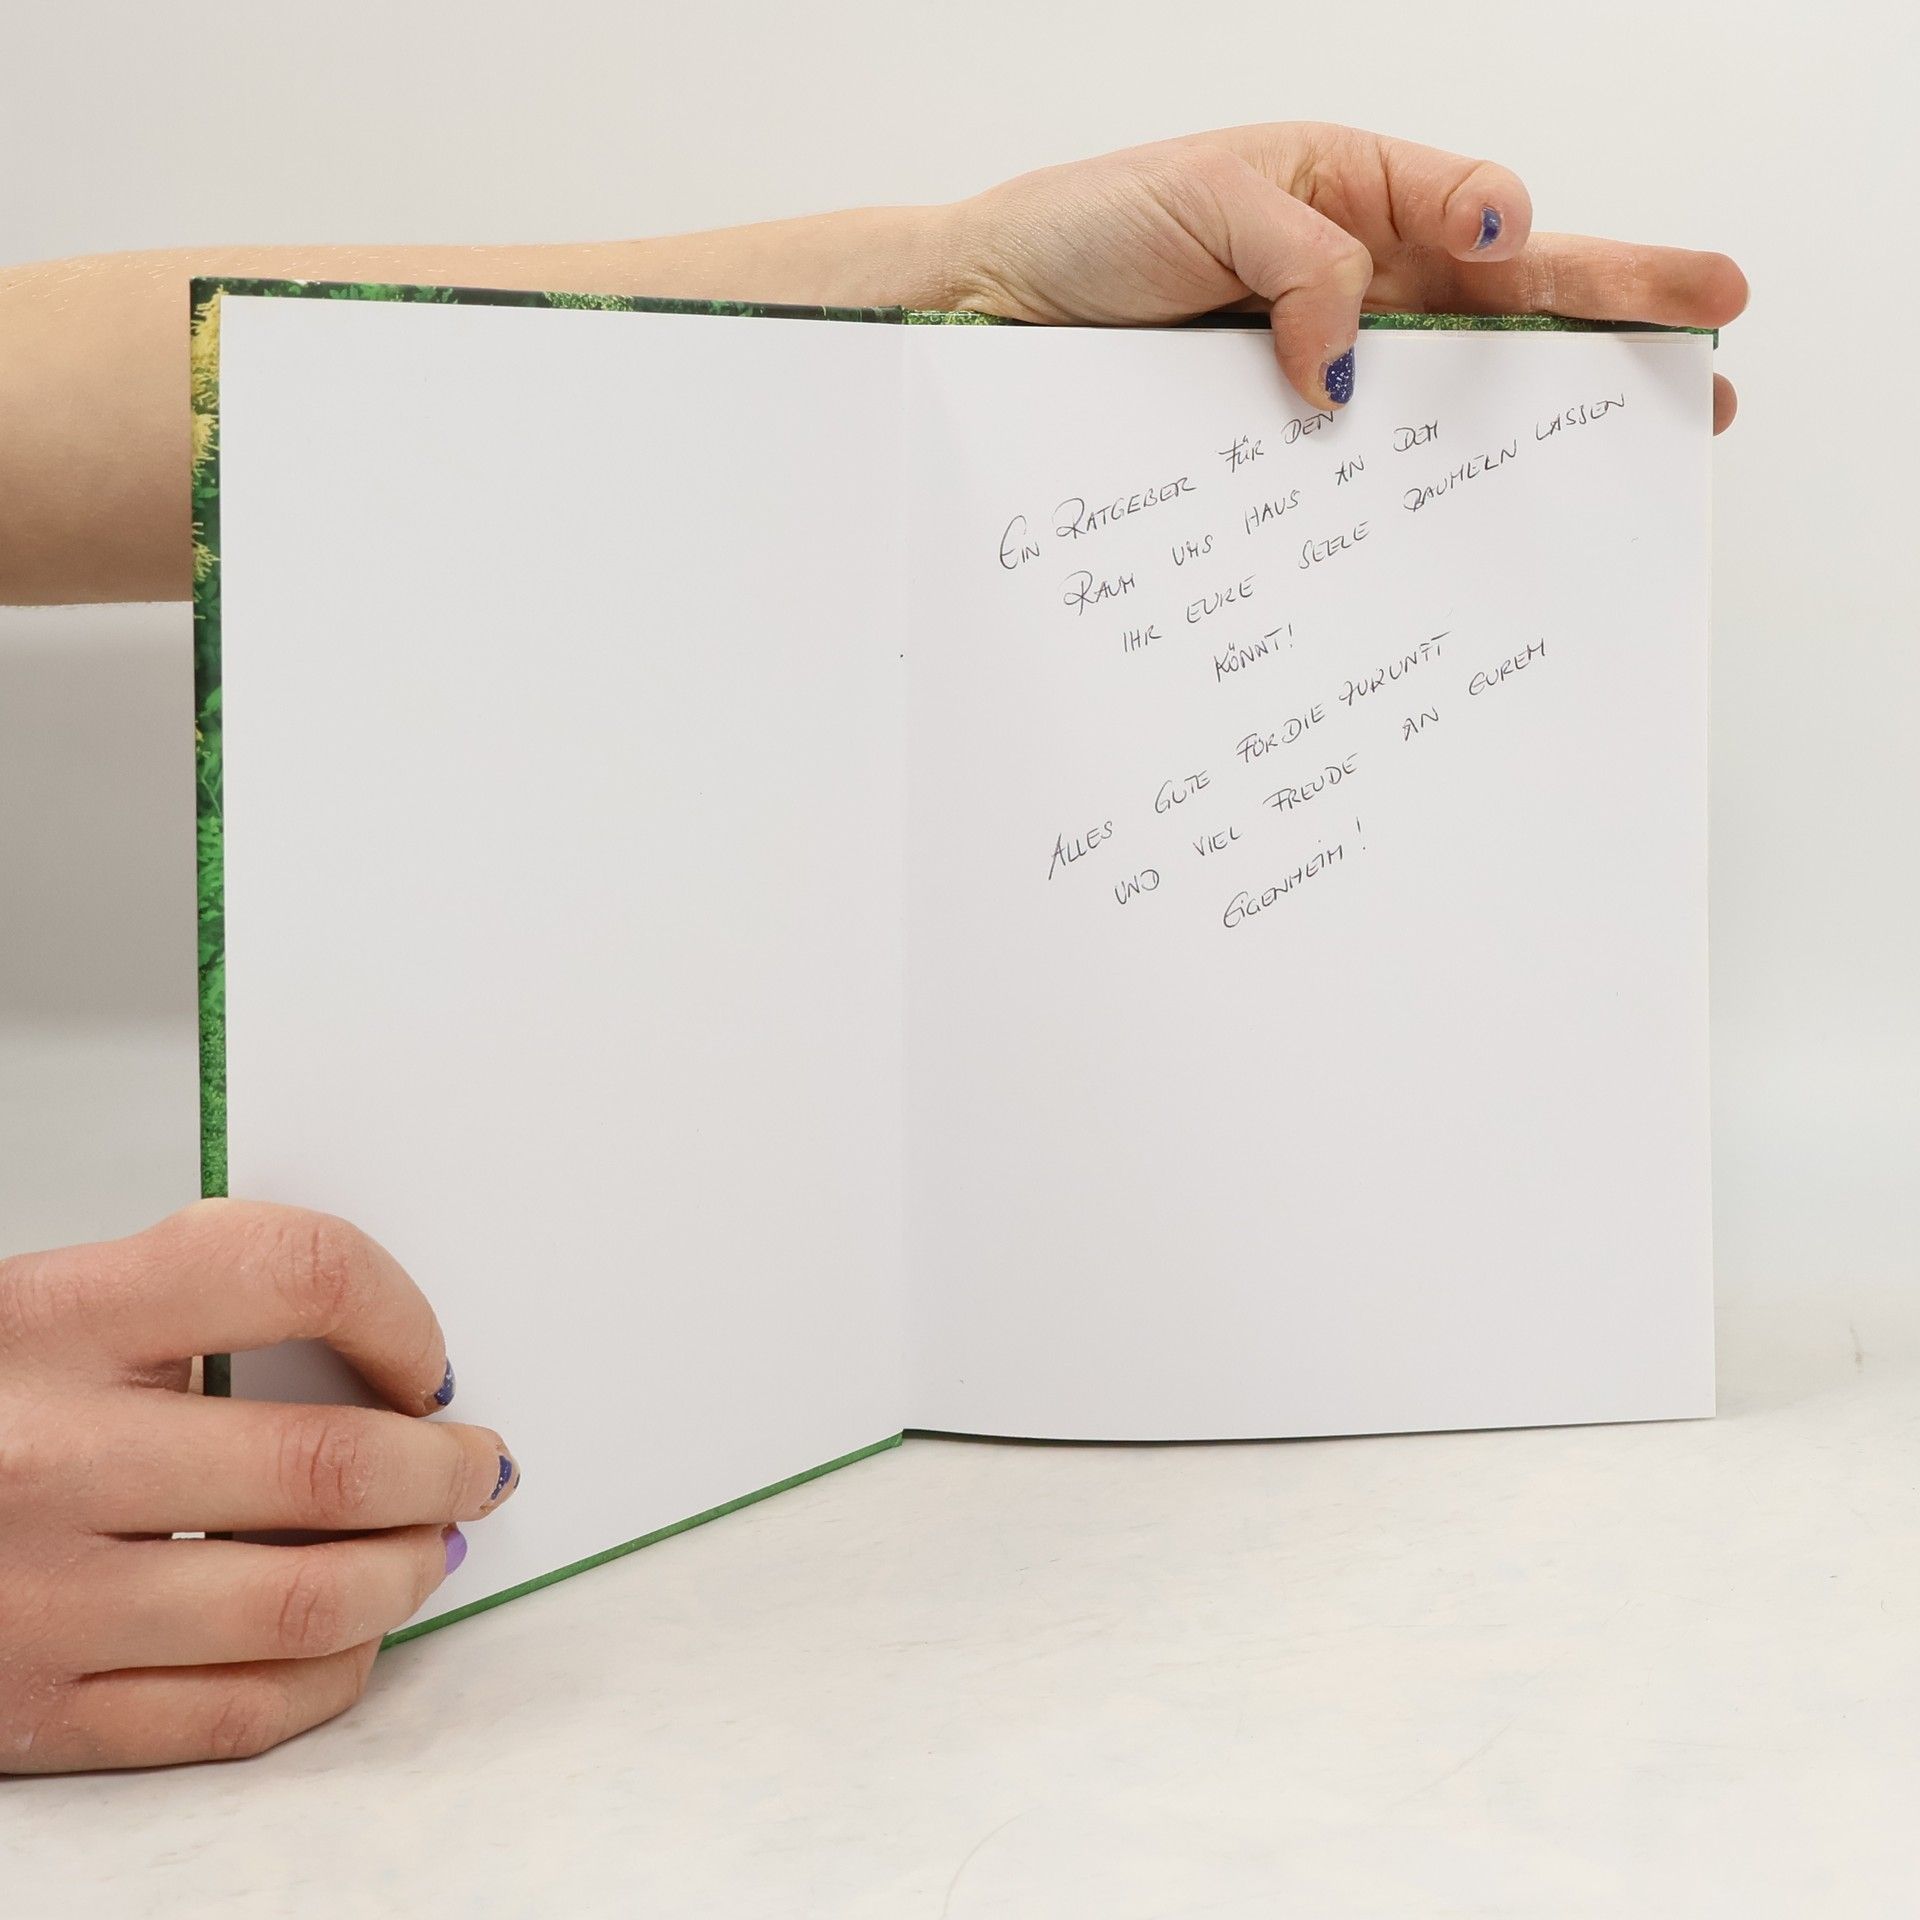 EIN RATGEBER FÜR DEN
RAUM UMS HAUS AN DEM
IHR EURE SEELE BAUMELN LASSEN
KÖNNT!
ALLES GUTE FÜR DIE ZUKUNFT
UND VIEL FREUDE AN EUREM
EIGENHEIM!